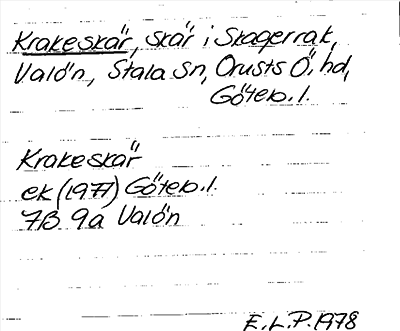 Krakeskär, skär i Skagerrak,
Valön, Stala sn, Orusts Ö. hd,
Göteb. l.
Krakeskär
ek (1977) Göteb. l.
7B 9a Valön
E.L.P. 1978